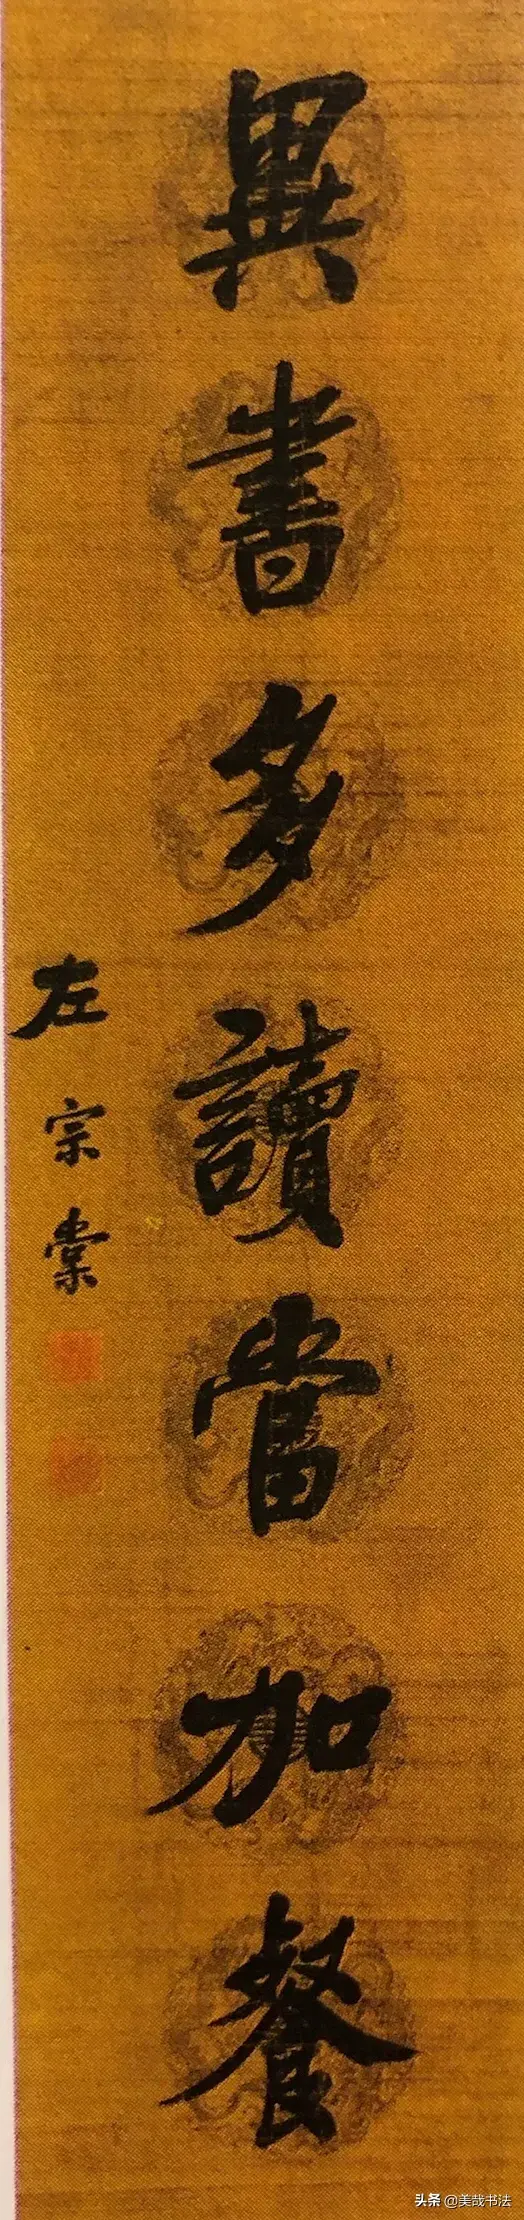 異書多讀當加餐
左宗棠
头条 @美哉书法